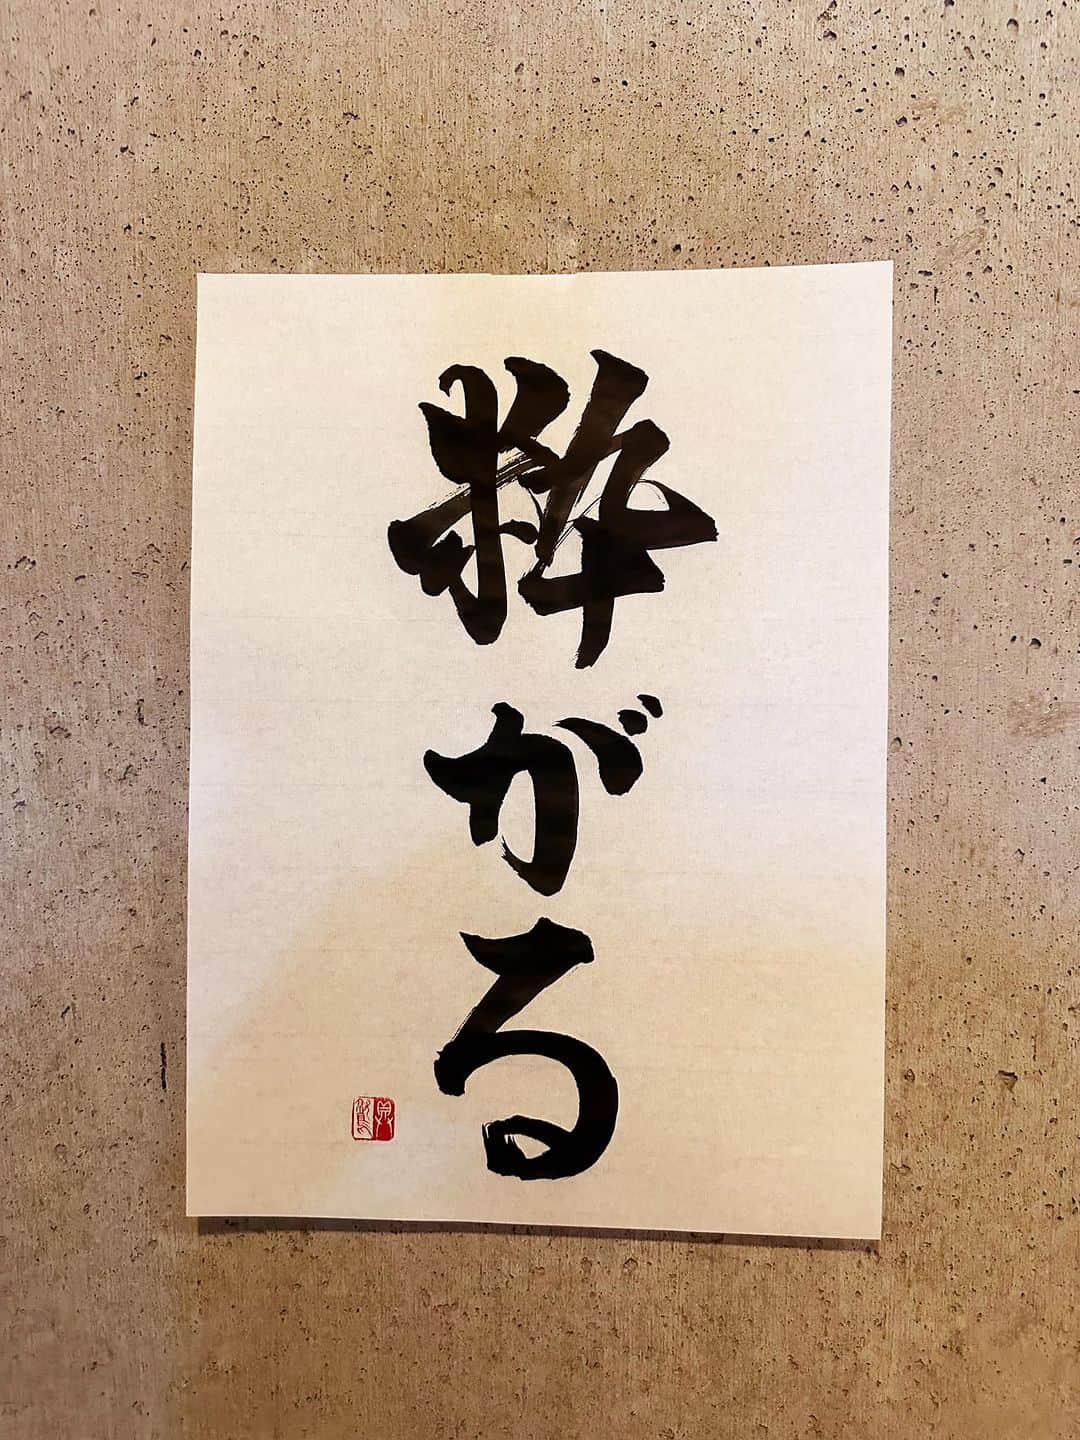 粋がる